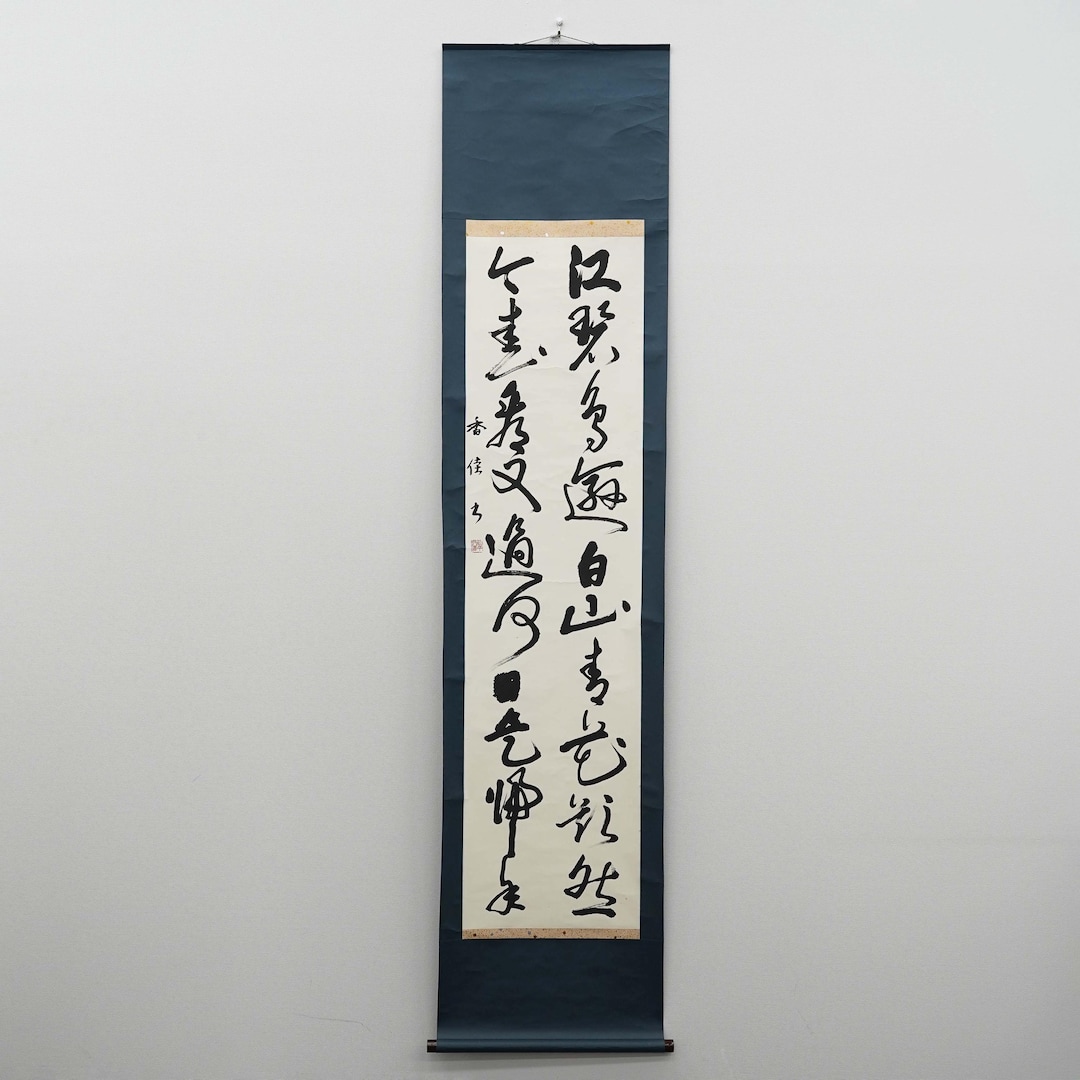 江碧鳥逾白山青花欲然
今春看又過何日是帰年
香佳書